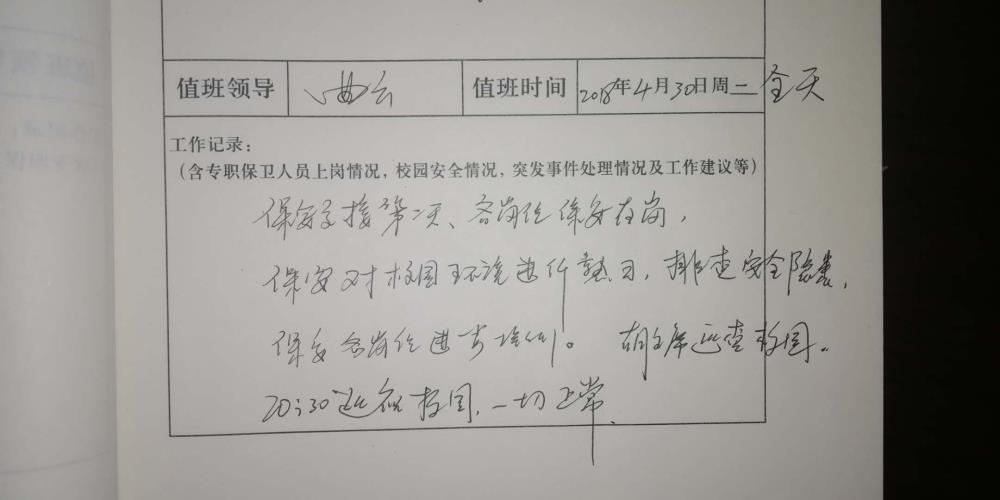 值班领导 曲云 值班时间 2018年4月30日周二 全天
工作记录：
（含专职保卫人员上岗情况，校园安全情况，突发事件处理情况及工作建议等）
保安交接第一天、各岗位保安在岗，
保安对校园环境进行熟习，排查安全隐患，
保安各岗位进一步培训。 胡主席巡查校园。
20:30巡视校园，一切正常。